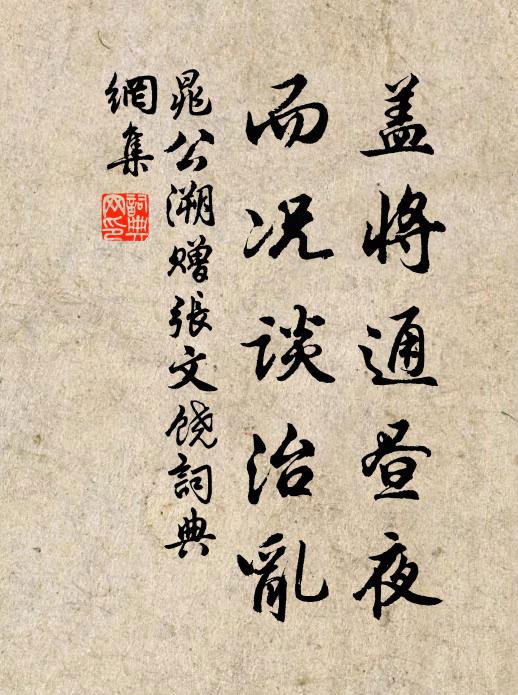 盖将通昼夜
而况谈治乱
晁公溯赠张文饶词典
网集
词典网印